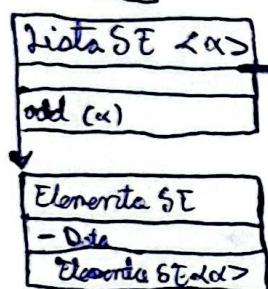 Lista SE <α>
add (α)
Elemento SE
- Dato
Elemento SE<α>